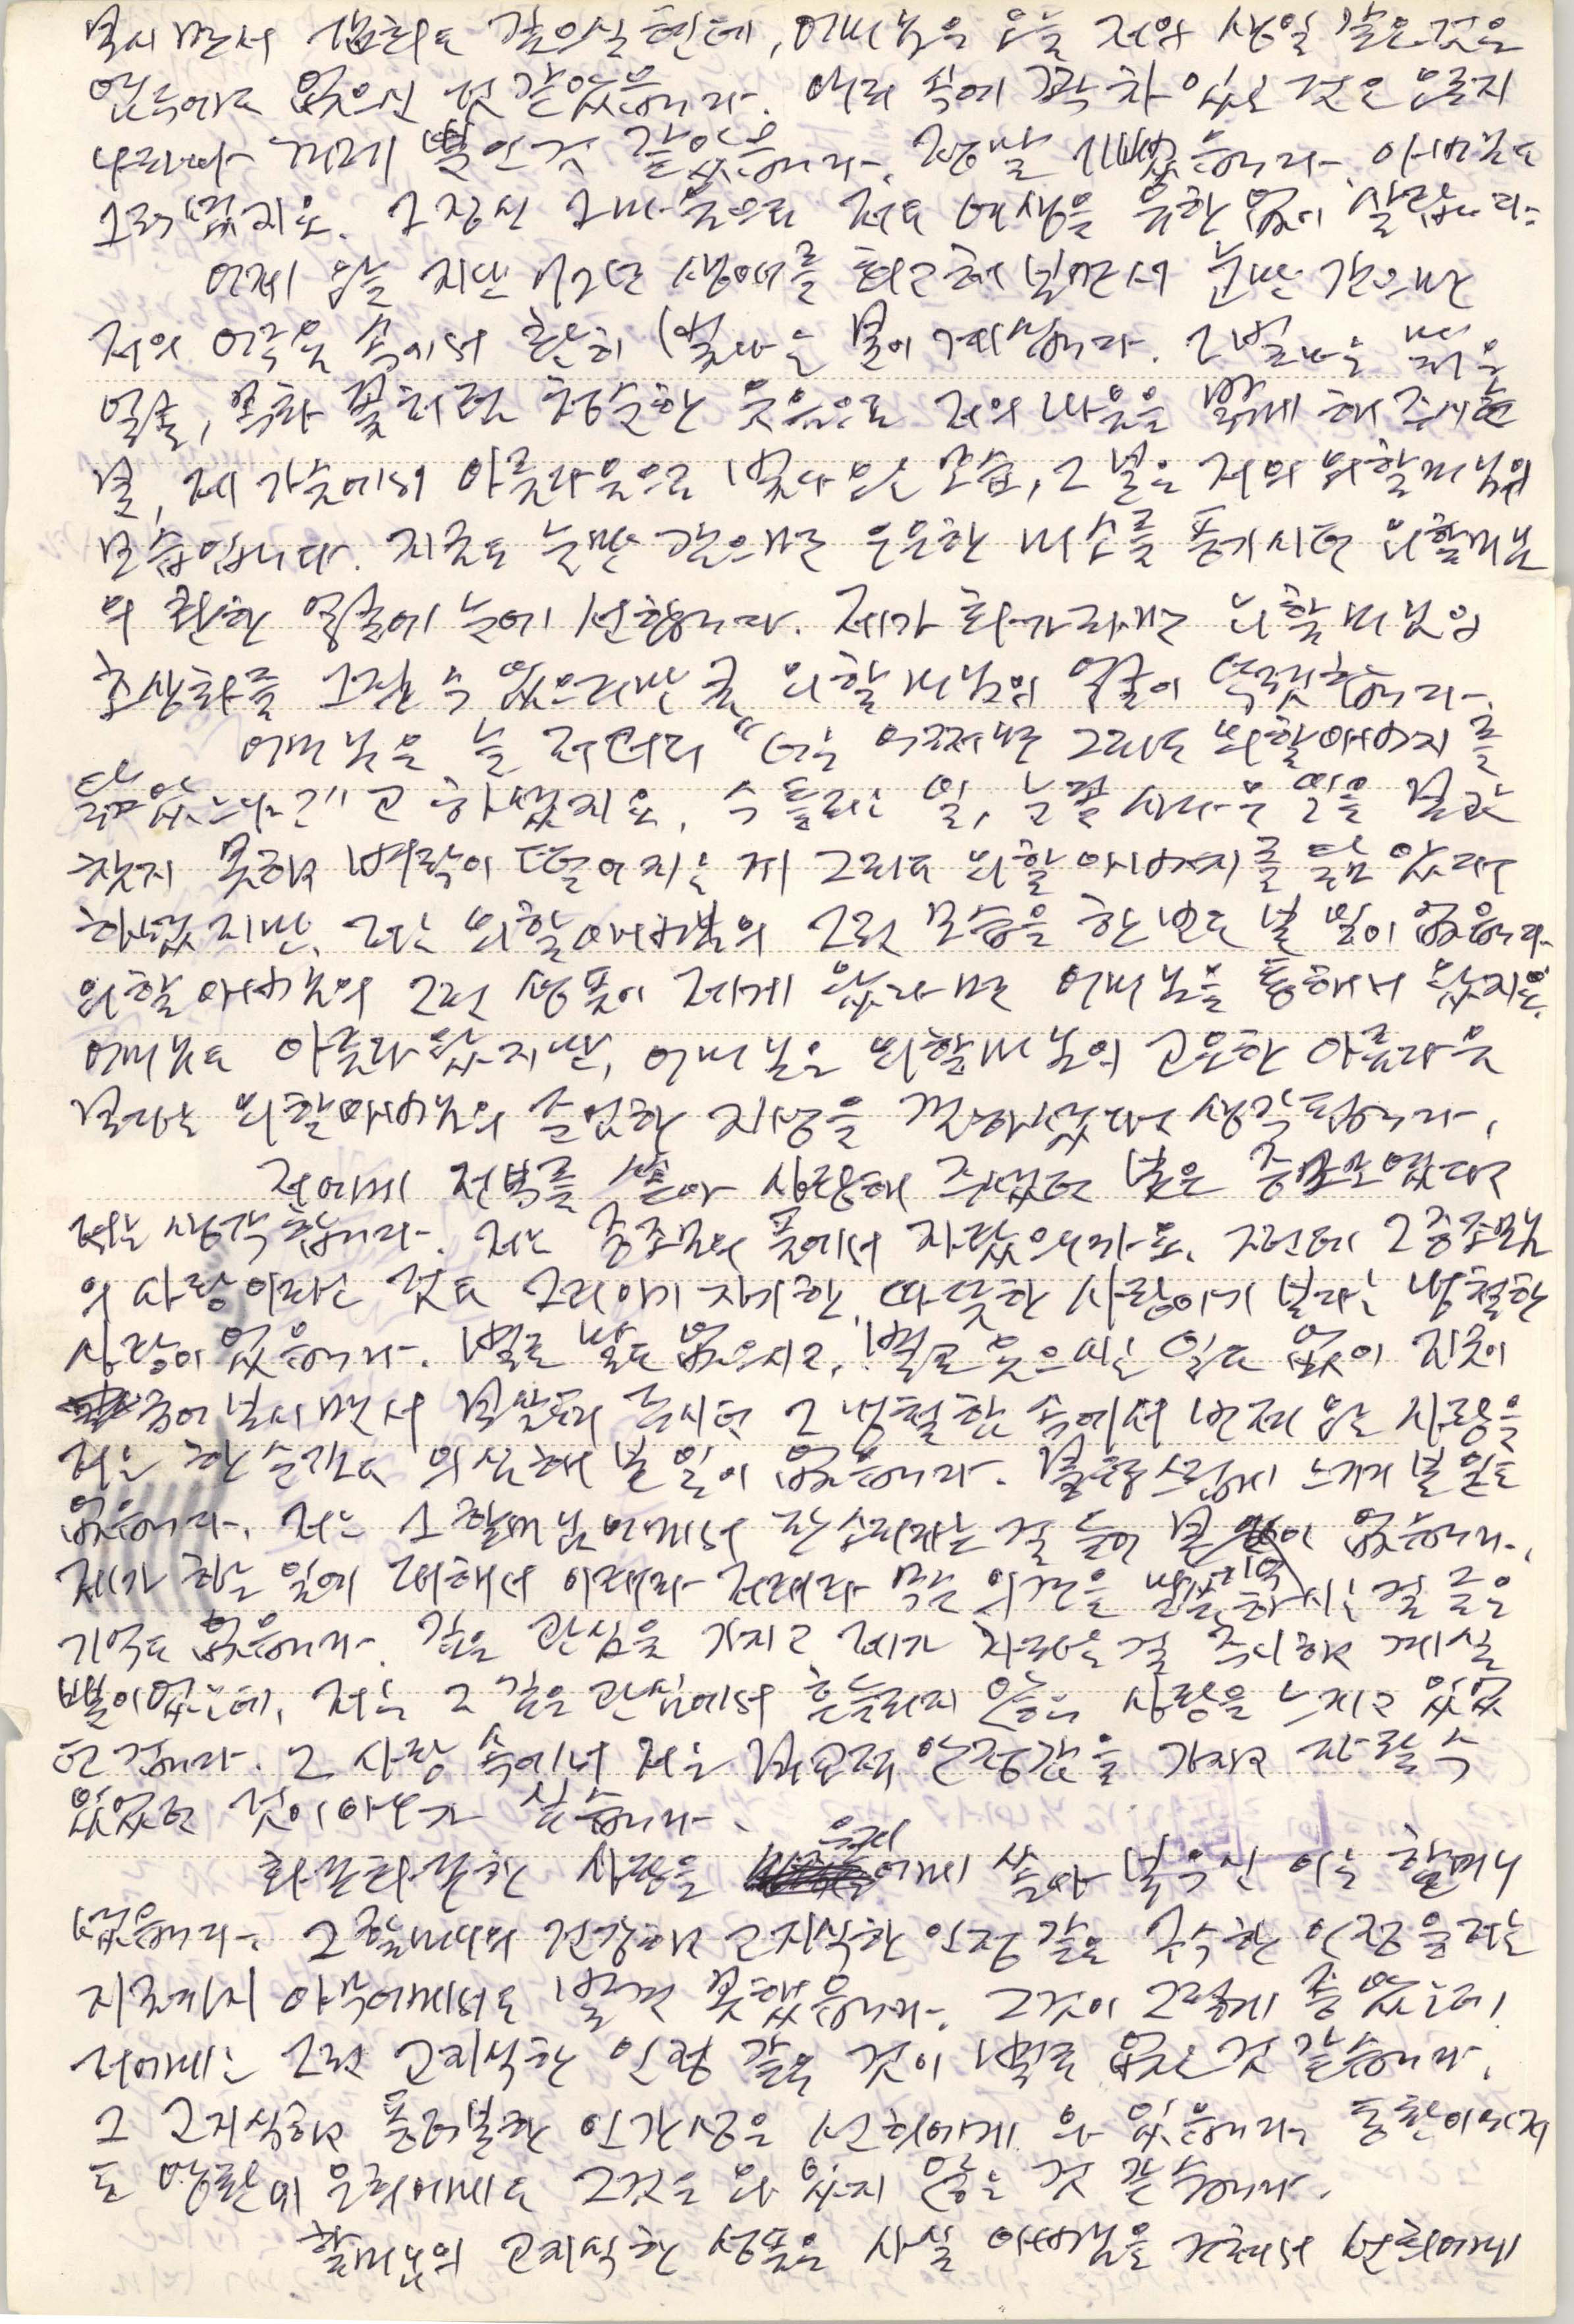 보시면서 섭섭하도 잡으실 텐데, 어머님은 오늘 저의 생일 같은 것은
안중에도 없으신 것 같았읍니다. 머리 속에 꽉 차 있는 것은 오로지
나라와 겨레 뿐인 것 같았읍니다. 정말 기뻤읍니다. 아버님도
그러셨지요. 그 정신 그 마음으로 저도 여생을 유한 없이 살렵니다.
어제 오늘 지난 일흔 생애를 회고해 보면서 눈만 감으면
저의 어두움 속에서 환히 빛나는 별이 계십니다. 그 빛나는 밝은
얼굴, 목화 꽃처럼 청순한 웃음으로 저의 마음을 맑게 해 주시는
별, 제 가슴에서 아름다움으로 빛나 있는 모습, 그 별은 저의 외할머님의
모습입니다. 지금도 눈만 감으면 은은한 미소를 풍기시던 외할머님
의 환한 얼굴이 눈에 선합니다. 제가 화가라면 외할머님의
초상화를 그릴 수 있으리만큼 외할머님의 얼굴이 또렷합니다.
어머님은 늘 저더러 "너는 어쩌면 그리도 외할아버지를
닮았느냐?"고 하셨지요. 수틀리는 일, 눈꼴 사나운 일을 보고
참지 못하고 벼락이 떨어지는 게 그리도 외할아버지를 닮았다고
하셨지만, 저는 외할아버님의 그런 모습을 한번도 본 일이 없읍니다.
외할아버님의 그런 성품이 제게 왔다면 어머님을 통해서 왔지요.
어머님도 아름다왔지만, 어머님은 외할머님의 고요한 아름다움
보다는 외할아버님의 준엄한 기상을 전하셨다고 생각됩니다.
저에게 전부를 쏟아 사랑해 주셨던 분은 증조모였다고
저는 생각합니다. 저는 증조모의 품에서 자랐으니까요. 그런데 그 증조모님
의 사랑이라는 것도 그리 아기자기한, 따뜻한 사랑이기 보다는 냉철한
사랑이었읍니다. 별로 말도 없으시고, 별로 웃으시는 일도 없이 지긋이
굽어보시면서 보살펴 주시던 그 냉철함 속에서 번져 오는 사랑을
저는 한 순간도 의심해 본 일이 없읍니다. 불안스럽게 느껴 본 일도
없읍니다. 저는 그 할머님에게서 잔소리라는 걸 들어 본 일이 없읍니다.
제가 하는 일에 대해서 이래라 저래라 무슨 의견을 발설하시는 걸 들은
기억도 없읍니다. 깊은 관심을 가지고 제가 자라는 걸 주시하고 계실
뿐이었는데, 저는 그 깊은 관심에서 흔들리지 않는 사랑을 느끼고 있었
던 겁니다. 그 사랑 속에서 저는 비교적 안정감을 가지고 자랄 수
있었던 것이 아닌가 싶습니다.
화끈화끈한 사랑을 우리에게 쏟아 부으신 이는 할머니
였읍니다. 그 할머니의 건강하고 고지식한 인정 같은 순수한 인정을 저는
지금까지 아무에게서도 발견 못했읍니다. 그것이 그렇게 좋았는데,
저에게는 그런 고지식한 인정 같은 것이 별로 없는 것 같습니다.
그 고지식하고 퉁명불한 인간상은 선희에게 와 있읍니다. 동환이에게
도 영환이 은희에게도 그것은 와 있지 않는 것 같습니다.
할머님의 고지식한 성품은 사실 아버님을 거쳐서 선희에게